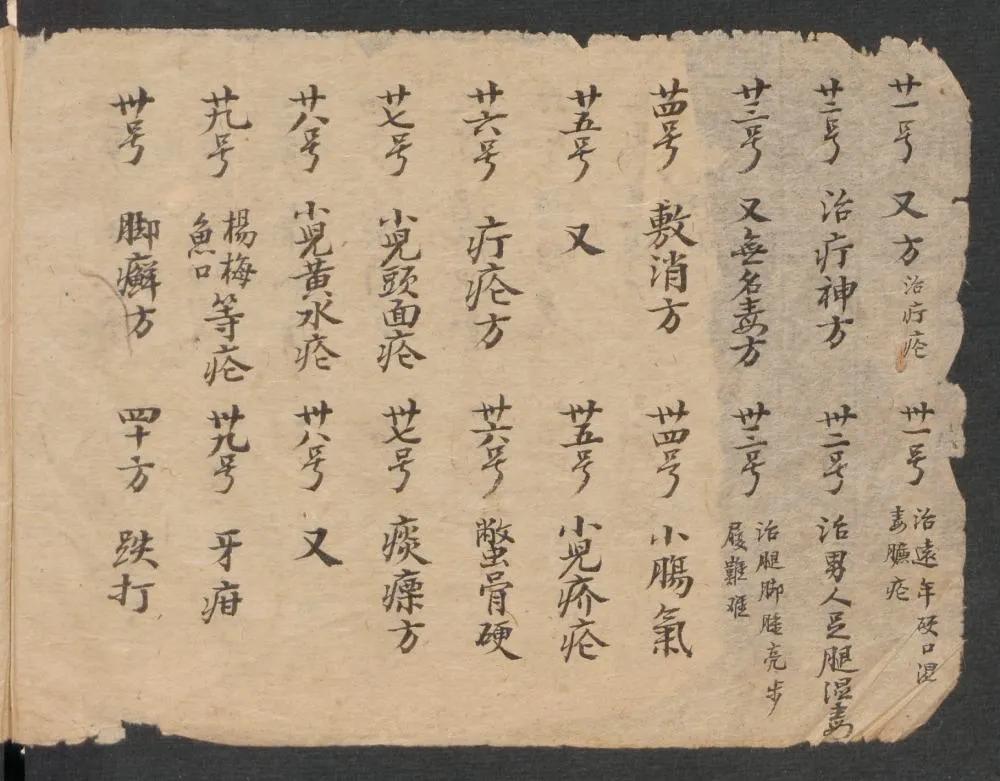 廿一号 又方 治疔疮
廿二号 治疔神方
廿三号 又無名毒方
廿四号 敷消方
廿五号 又
廿六号 疔疮方
廿七号 小児頭面疮
廿八号 小児黄水疮
廿九号 楊梅魚口等疮
卅号 脚癬方
卅一号 治遠年硬口湿毒臁疮
卅二号 治男人足腿湿毒
卅三号 治腿脚腫亮步履艱难
卅四号 小腸氣
卅五号 小児疥疮
卅六号 蟞骨硬
卅七号 痰瘰方
卅八号 又
卅九号 牙疳
四十方 跌打